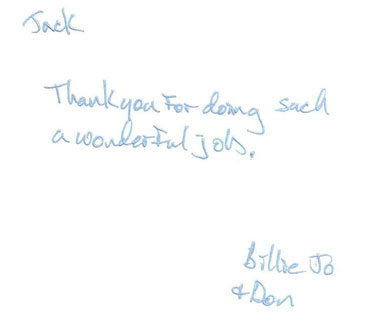 Jack
Thank you For doing such
a wonderful job.
Billie Jo
& Don